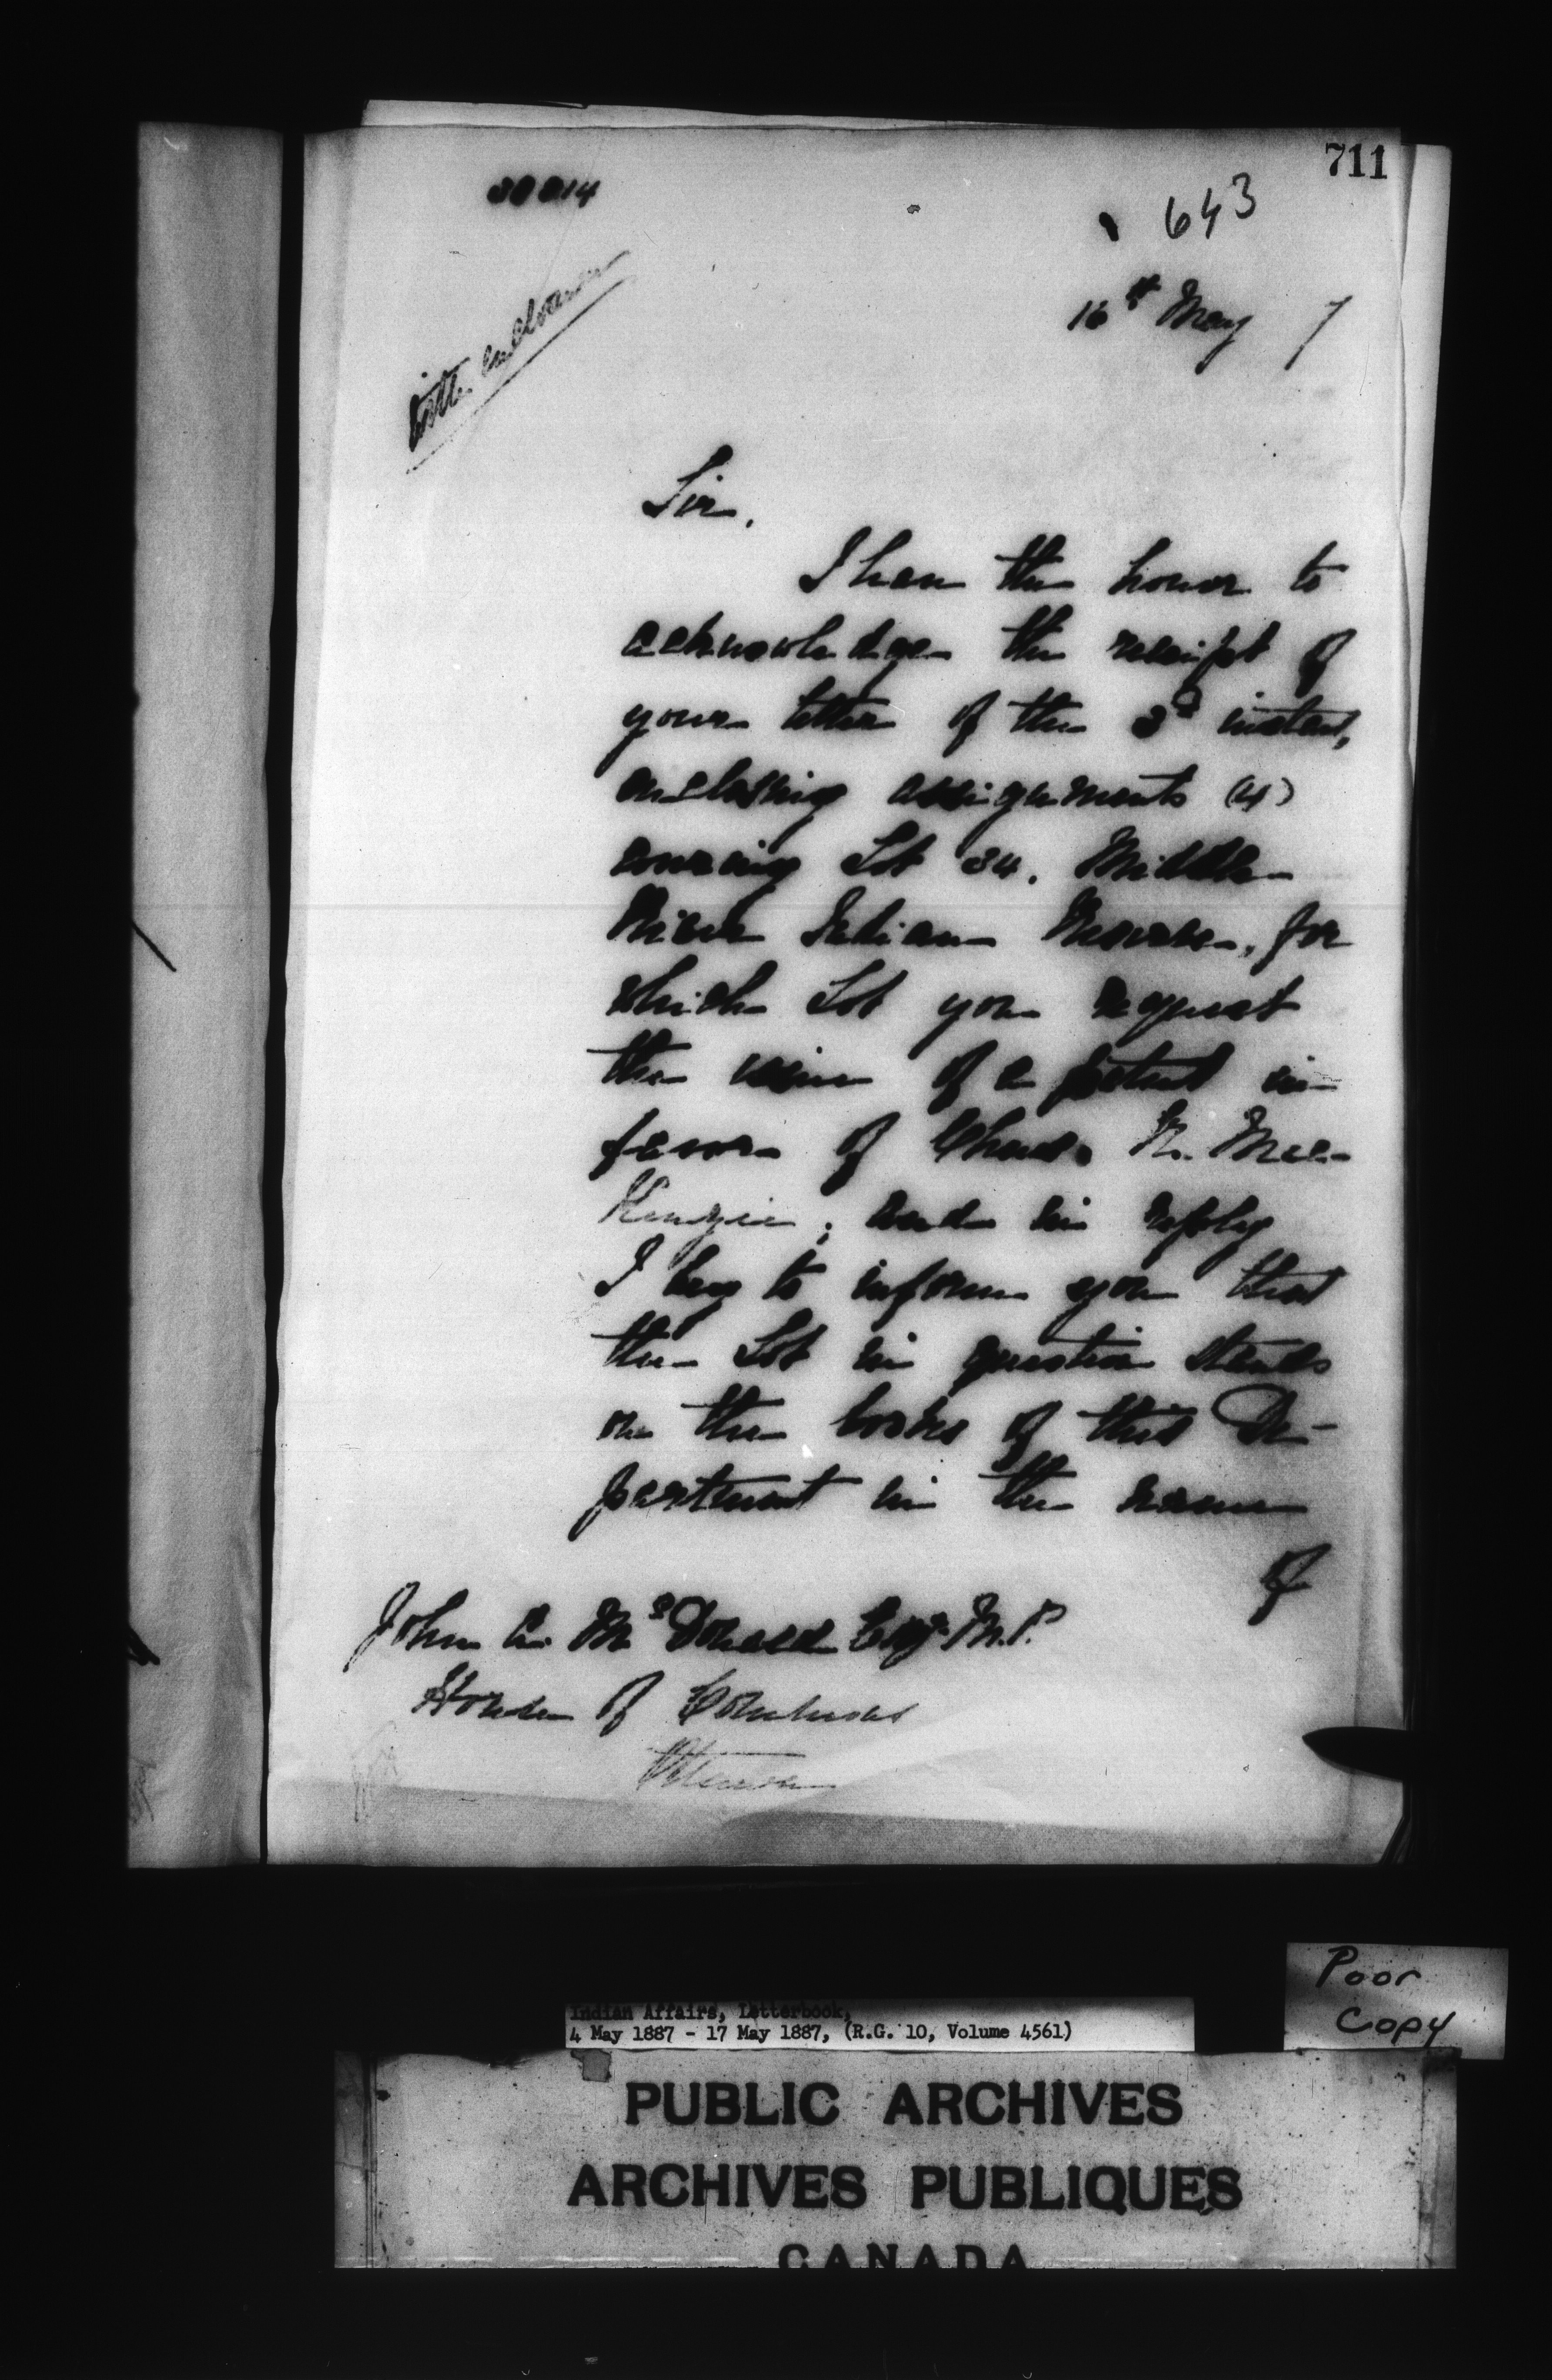 711
643
16th May 7
Sir,
I have the honor to
acknowledge the receipt of
your letter of the 3d instant,
enclosing assignments (4)
covering Lot 34, Middle
River Indian Reserve, for
which Lot you request
the issue of a patent in
favor of Chas. N. Mac-
Kenzie; and in reply
I beg to inform you that
the Lot in question stands
on the books of this De-
partment in the name
of
John A. McDonald Esqr. M.P.
House of Commons
Ottawa
Poor
Copy
Indian Affairs, Letterbook,
4 May 1887 - 17 May 1887, (R.G. 10, Volume 4561)
PUBLIC ARCHIVES
ARCHIVES PUBLIQUES
CANADA